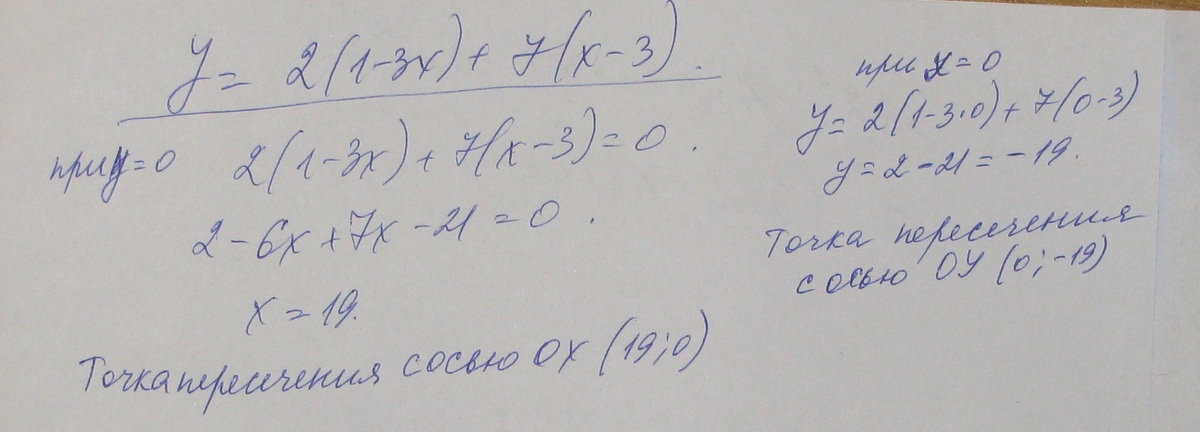 y = 2(1-3x) + 7(x-3).
при y=0 2(1-3x) + 7(x-3) = 0.
2 - 6x + 7x - 21 = 0.
x = 19.
Точка пересечения с осью OX (19; 0)
при x = 0
y = 2(1-3·0) + 7(0-3)
y = 2 - 21 = -19.
Точка пересечения
с осью ОУ (0; -19)